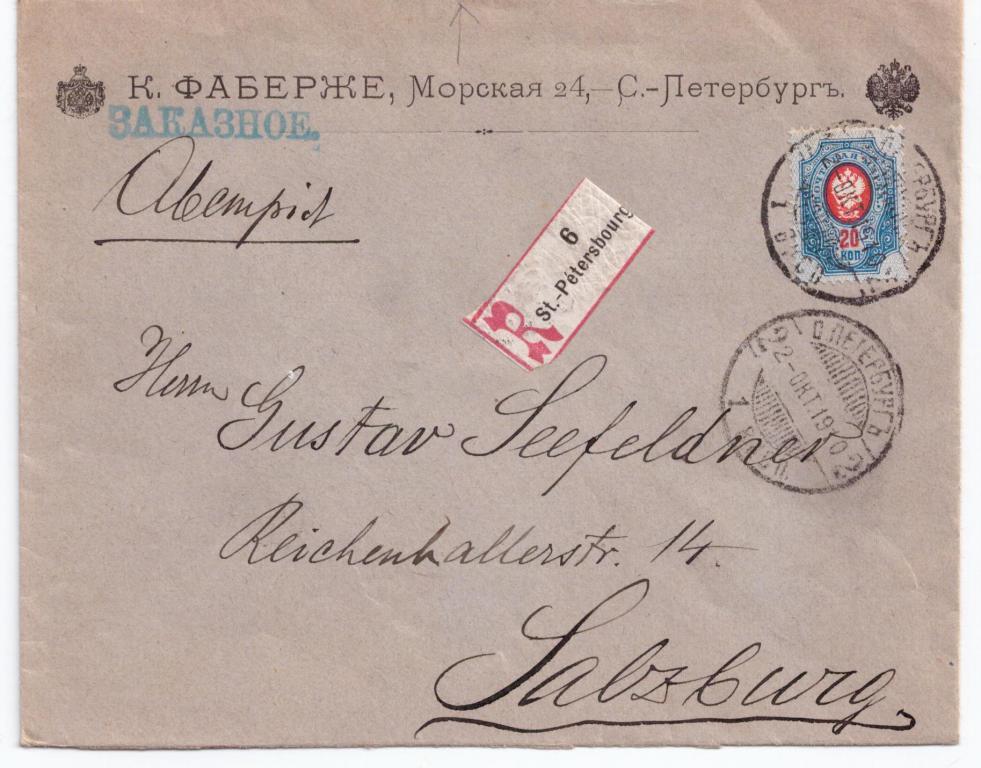 К. ФАБЕРЖЕ, Морская 24,—С.-Петербургъ.
ЗАКАЗНОЕ.
20
КОП
6
St.-Pétersbourg
R
Herrn
Gustav Seefeldner
Reichenhallerstr. 14.
Salzburg
С.ПЕТЕРБУРГЪ
2-ОКТ.1910
1